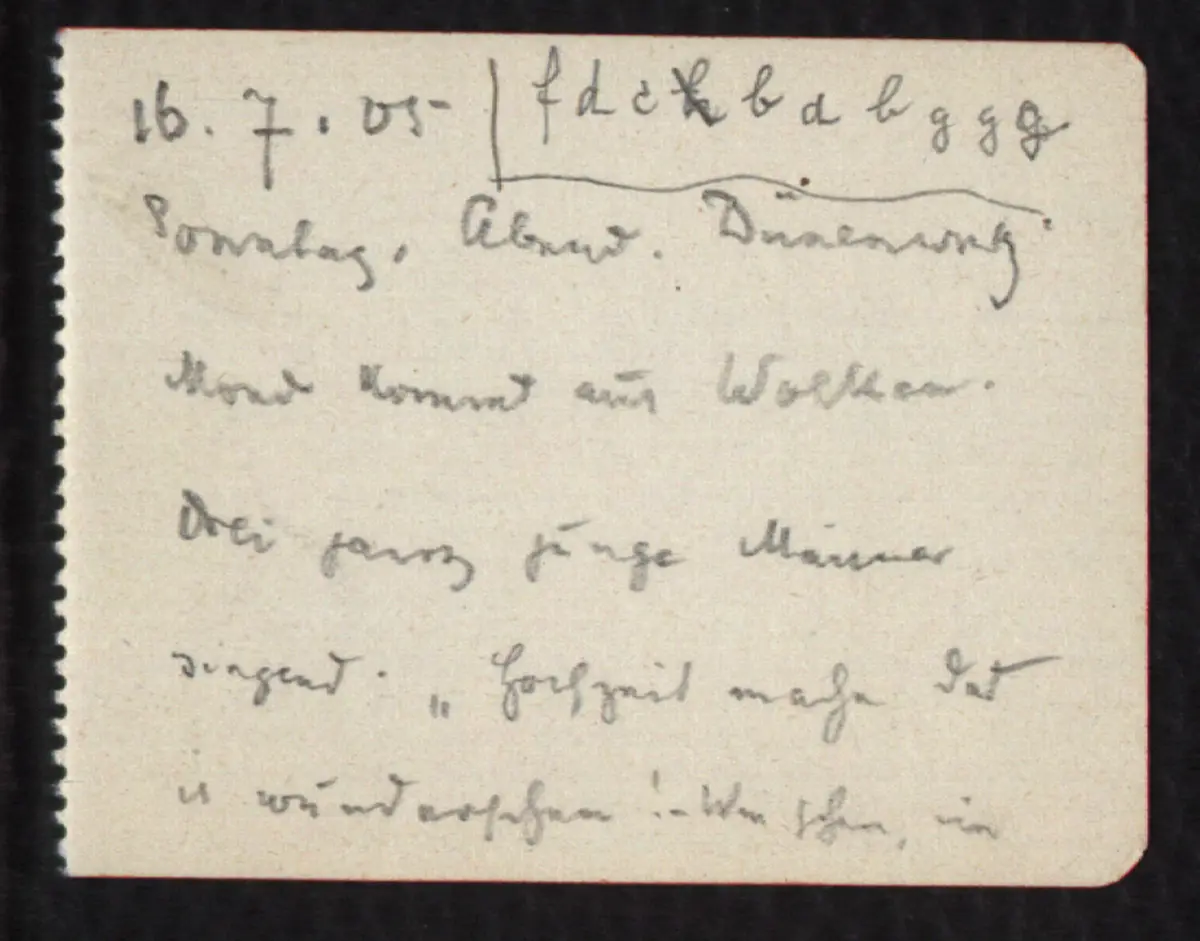 16. 7. 05 f d c b a b g g g
Sonntag. Abend. Dünenweg.
Mond kommt aus Wolken.
Drei ganz junge Männer
singend. „Hochzeit mache dat
is wunderschen! - Wie schen,